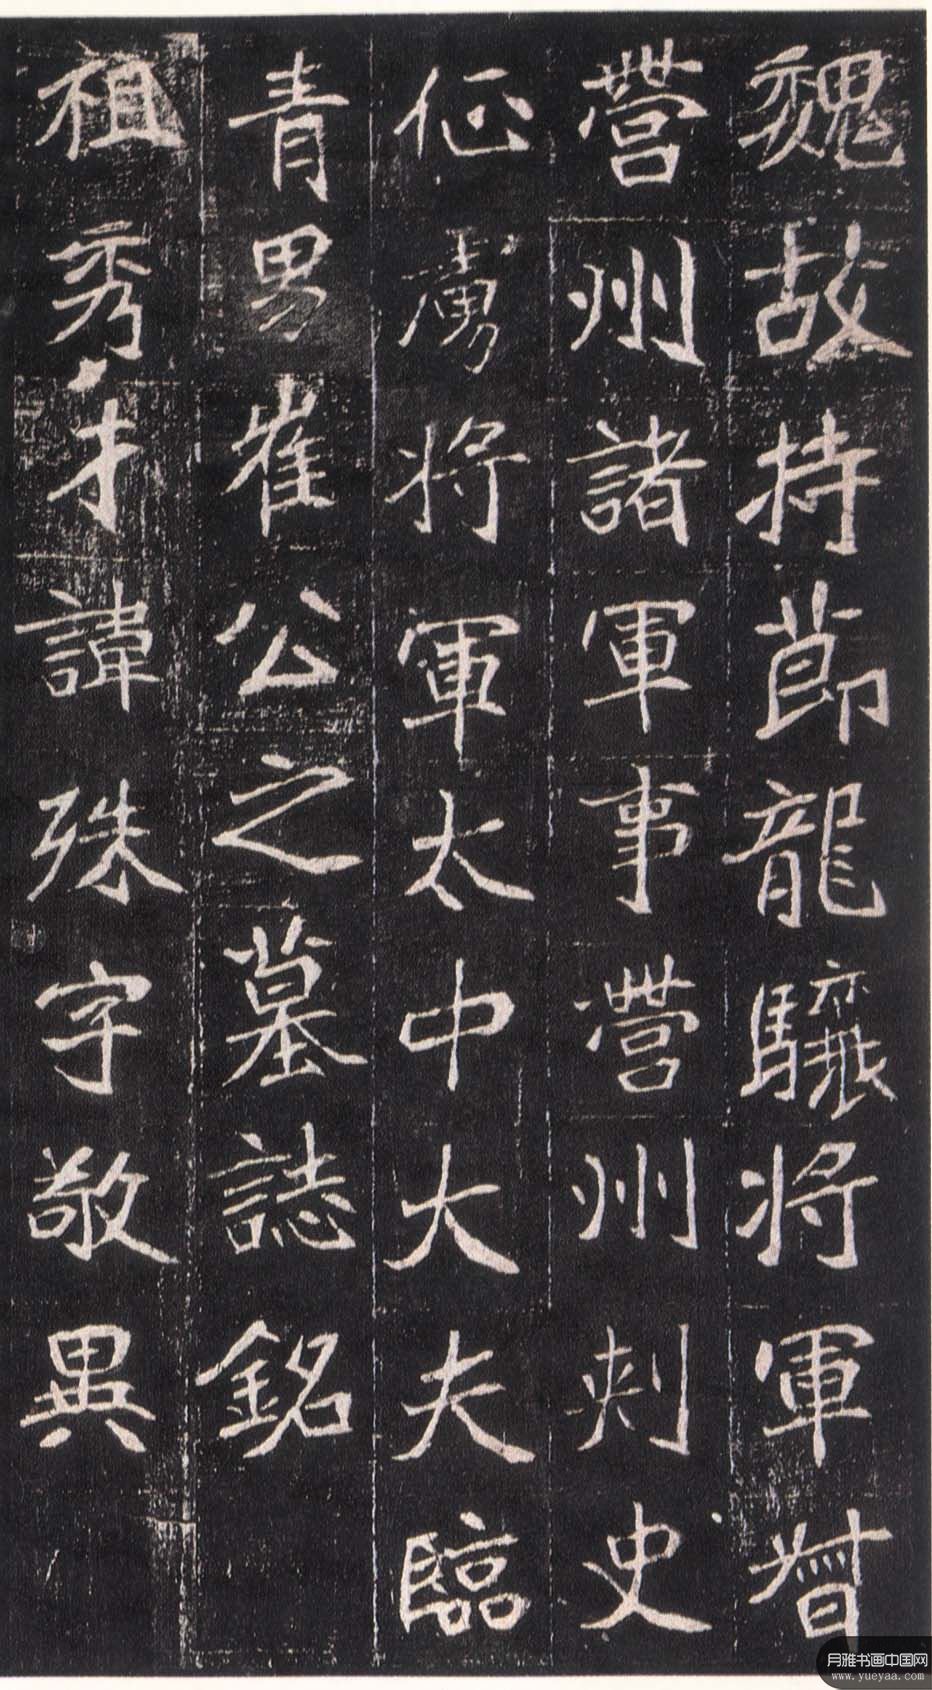 魏故持節龍驤將軍督
營州諸軍事營州刺史
征虜將軍太中大夫臨
青男崔公之墓誌銘
祖秀才諱殊字敬異
月雅书画中国网
www.yueyaa.com